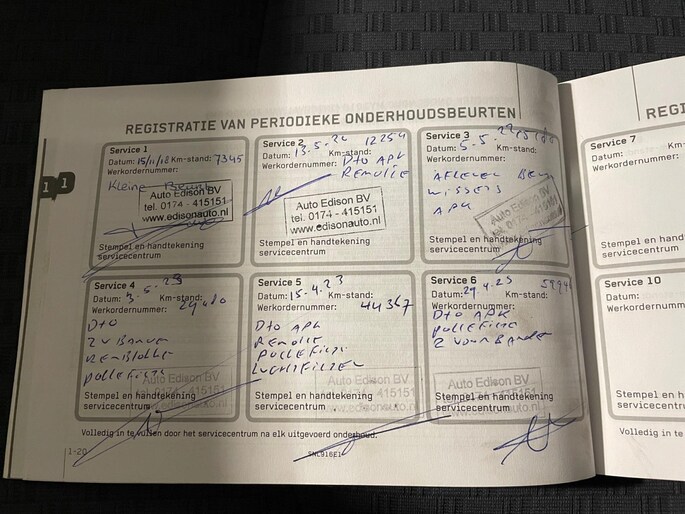 REGISTRATIE VAN PERIODIEKE ONDERHOUDSBEURTEN
Service 1
Datum: 15/11/18 Km-stand: 7345
Werkordernummer:
Kleine Beurt
Auto Edison BV
tel. 0174 - 415151
www.edisonauto.nl
Stempel en handtekening
servicecentrum
Service 2
Datum: 13-5-20 Km-stand: 12254
Werkordernummer:
D+O APK
REMOLIE
Auto Edison BV
tel. 0174 - 415151
www.edisonauto.nl
Stempel en handtekening
servicecentrum
Service 3
Datum: 5-5- Km-stand:
Werkordernummer:
AFLEVER
WISSERS
APK
Auto Edison BV
tel. 0174 - 415151
Stempel en handtekening
servicecentrum
Service 4
Datum: 3-5-23 Km-stand:
Werkordernummer:
D+O
2 V BANDEN
REMBLOKKEN
POLLEFILTER
Auto Edison BV
tel. 0174 - 415151
Stempel en handtekening
servicecentrum
Service 5
Datum: 15-4-23 Km-stand:
Werkordernummer: 44367
D+O APK
REMOLIE
POLLEFILTER
LUCHTFILTER
Auto Edison BV
Stempel en handtekening
servicecentrum
Service 6
Datum: 29-4-25 Km-stand:
Werkordernummer:
D+O APK
POLLEFILTER
2 VOORBANDEN
Auto Edison BV
Stempel en handtekening
servicecentrum
Volledig in te vullen door het servicecentrum na elk uitgevoerd onderhoud.
1-20
SNL916E1
1 1
REGI
Service 7
Datum:
Werkordernumm
Stempel en hand
servicecentrum
Service 10
Datum:
Werkordernumm
Stempel en han
servicecentrum
Volledig in te v